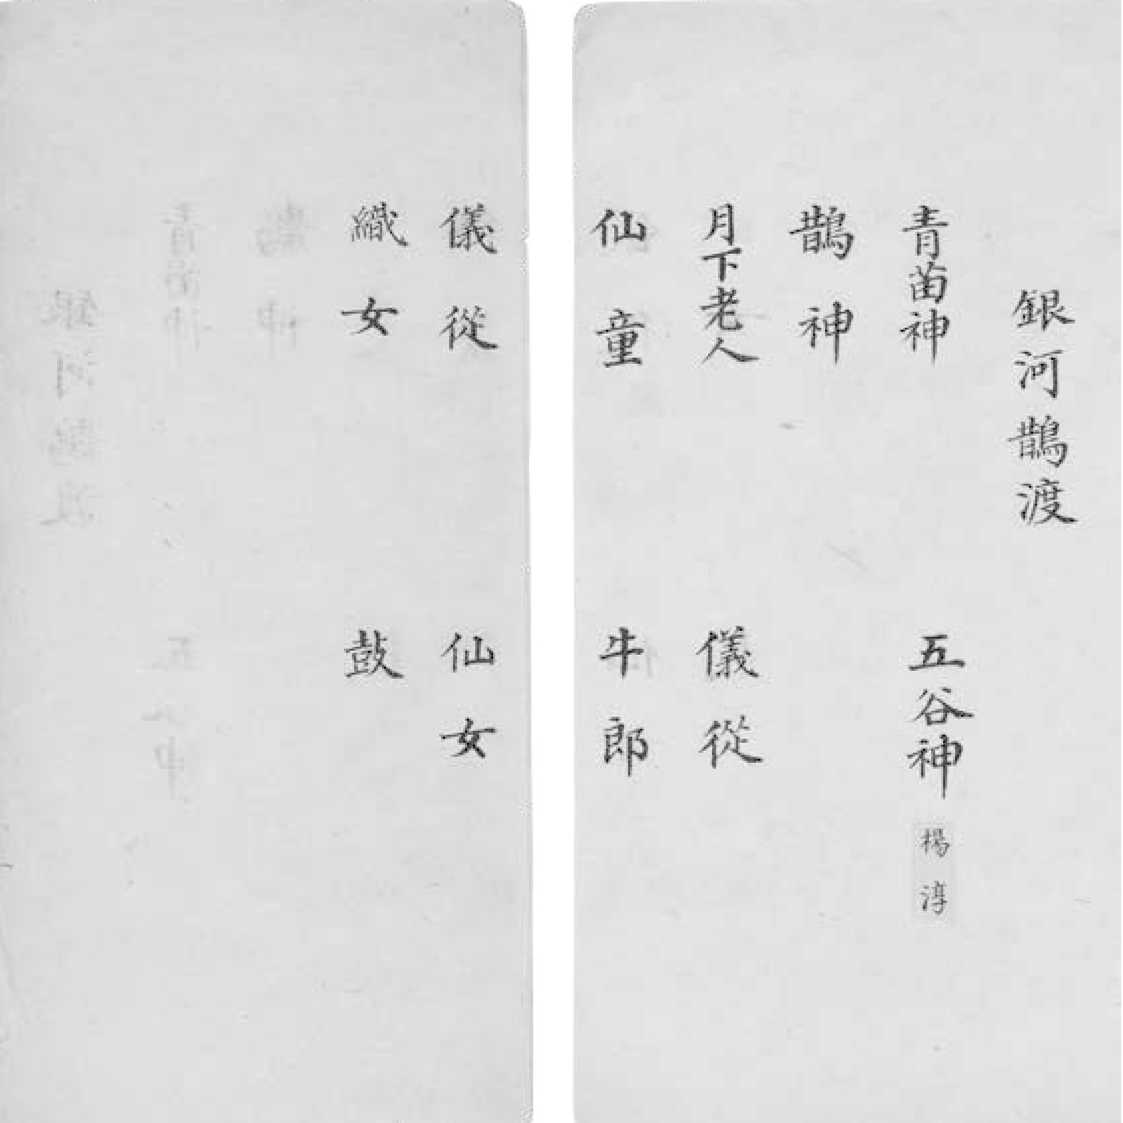 銀河鵲渡
青苗神
五谷神
楊淳
鵲神
月下老人
儀從
仙童
牛郎
儀從
仙女
織女
鼓